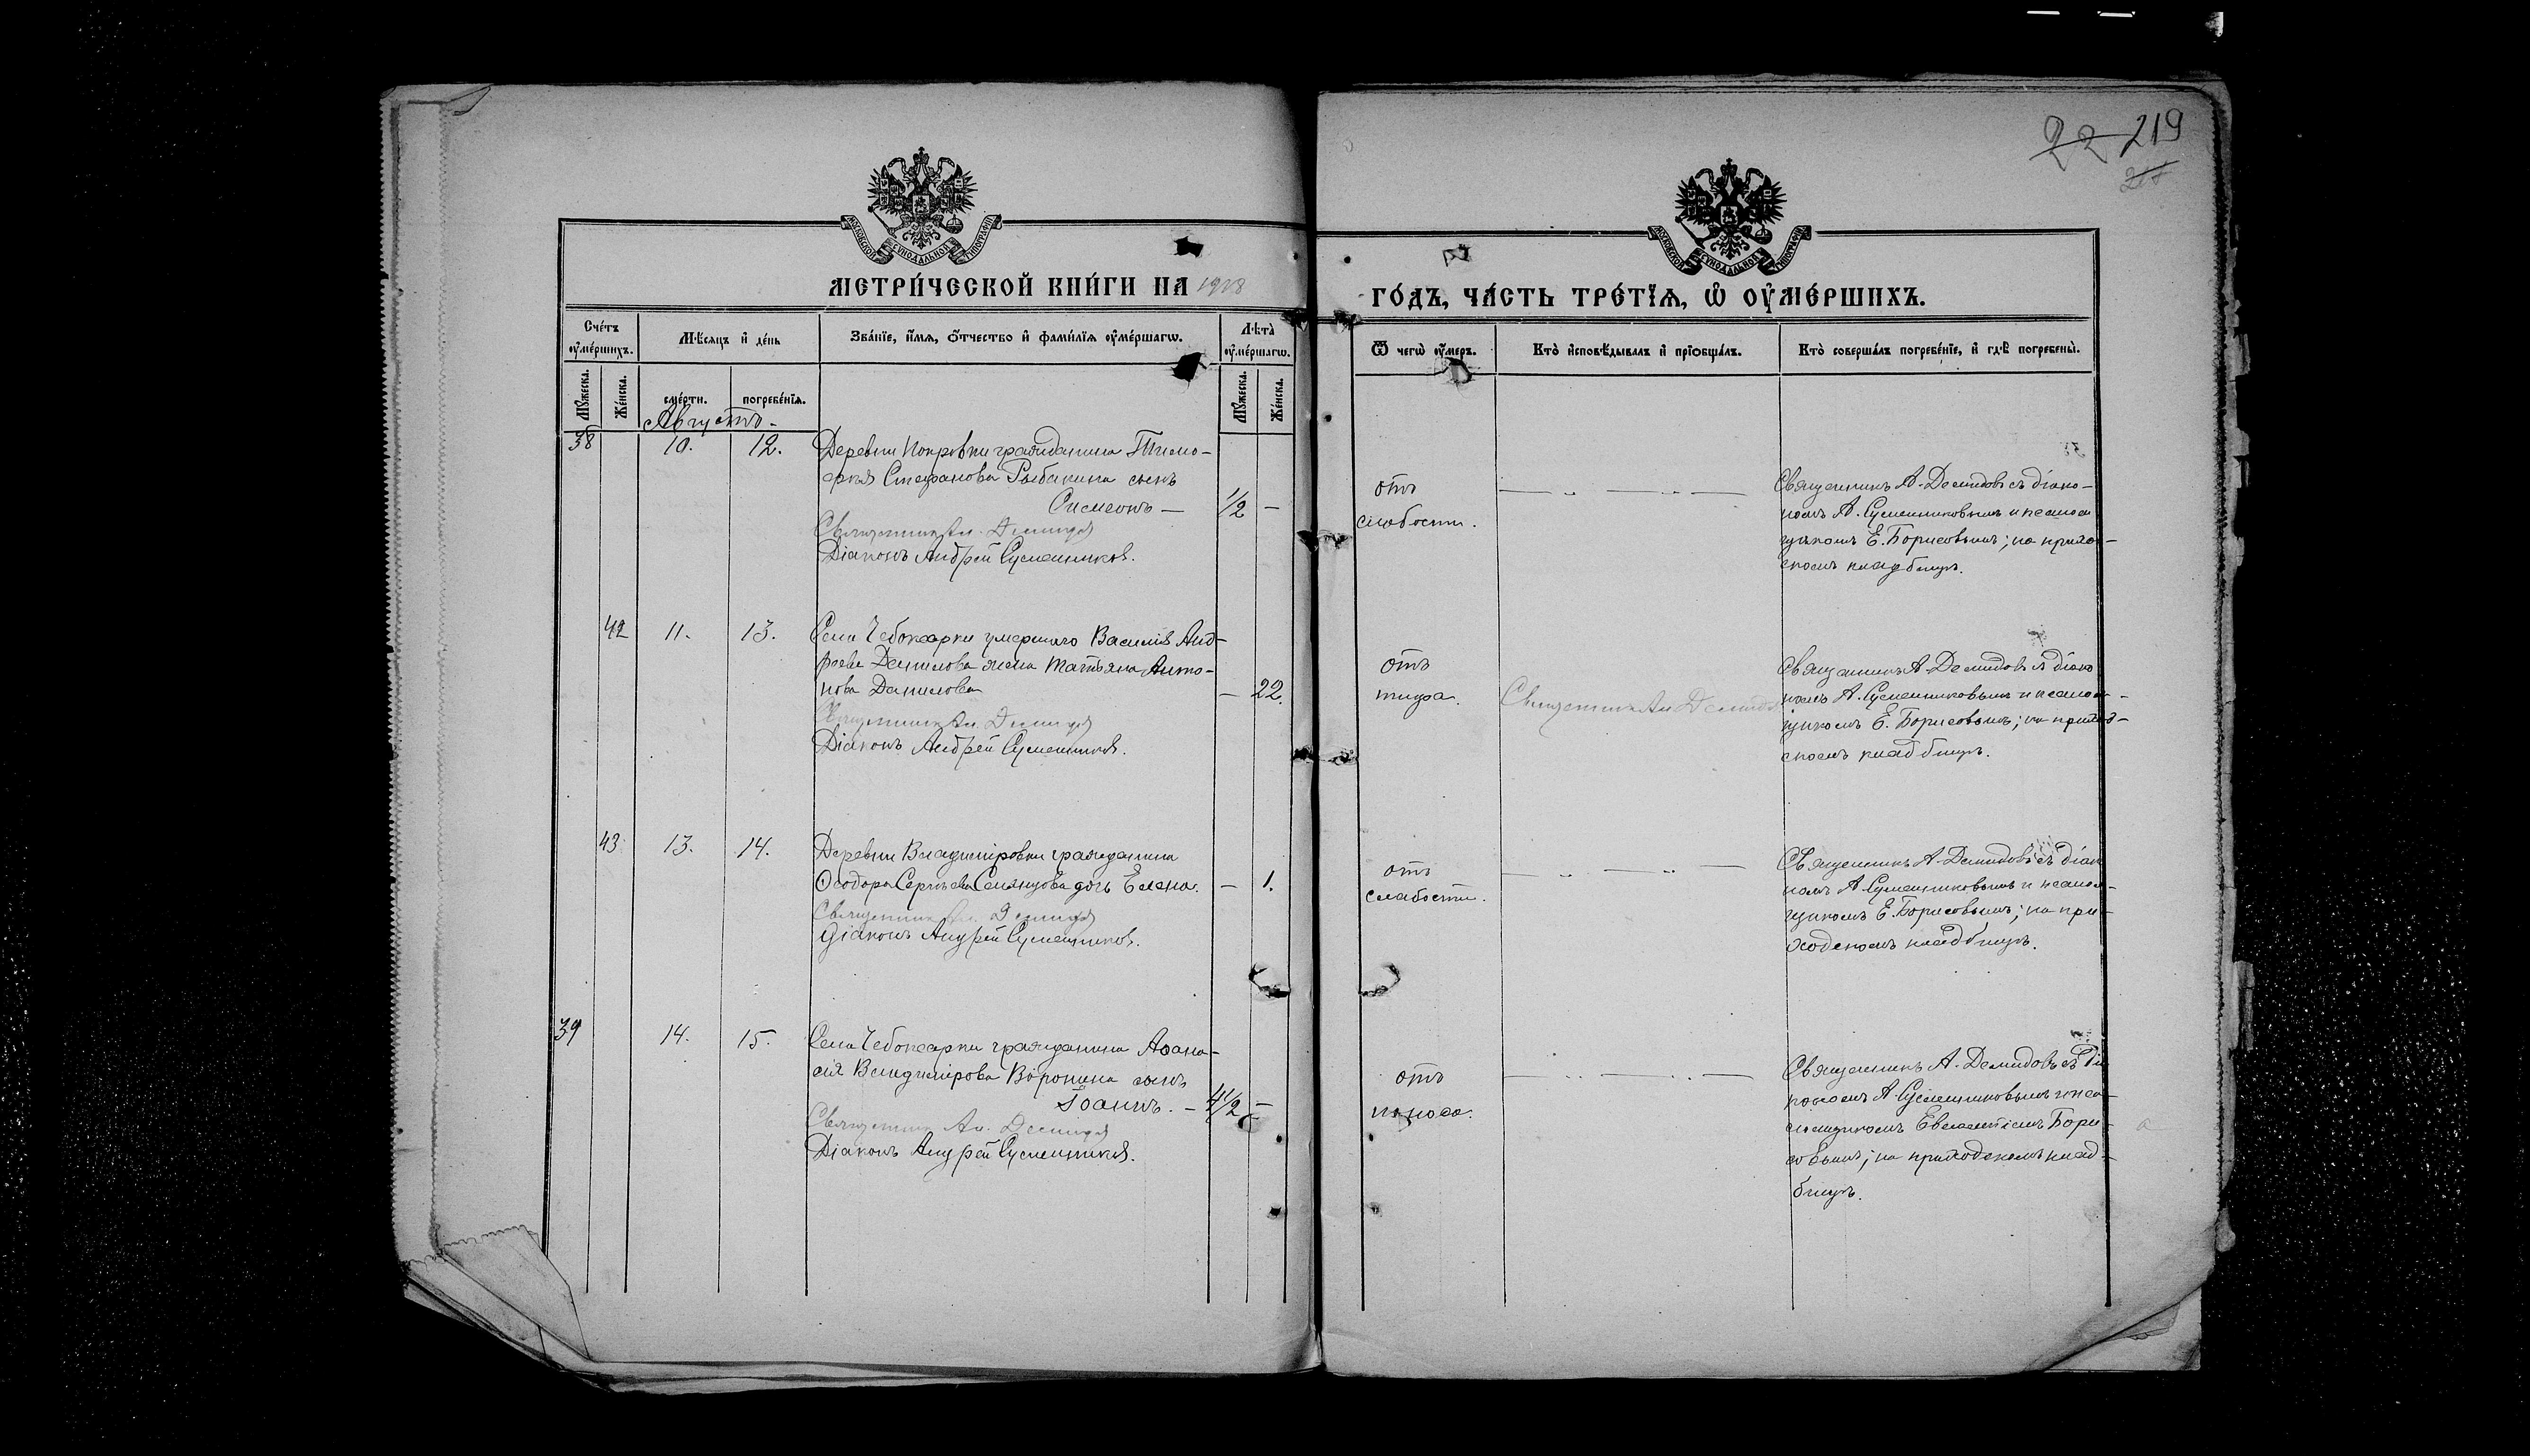 22 219
218
МОСКОВСКОЙ СѴНОДАЛЬНОЙ ТИПОГРАФІИ
МОСКОВСКОЙ СѴНОДАЛЬНОЙ ТИПОГРАФІИ
МЕТРИ́ЧЕСКОЙ КНИ́ГИ НА 1918
ГО́ДЪ, ЧА́СТЬ ТРЕ́ТІѦ, Ѡ҆ ОУ҆МЕ́РШИХЪ.
Сче́тъ оу҆ме́ршихъ.
Мѣ́сѧцъ и҆ де́нь
Зва́нїе, и҆́мѧ, ѻ҆́тчество и҆ фами́лїѧ оу҆ме́ршагѡ.
Лѣ́та оу҆ме́ршагѡ.
Ѿ чегѡ̀ оу҆́меръ.
Кто̀ и҆сповѣ́дывалъ и҆ прїѻбща́лъ.
Кто̀ соверша́лъ погребе́нїе, и҆ гдѣ̀ погребены̀.
Мꙋ́жеска.
Же́нска.
сме́рти.
погребе́нїѧ.
Мꙋ́жеска.
Же́нска.
Августъ-
38 10. 12. Деревни Покровки гражданина Тимо-
ѳея Стефанова Рыбакина сынъ
Симеонъ — 1/2 —
Священникъ Ал. Демидов
Діаконъ Андрей Сумешников.
отъ
слабости.
Священникъ А. Демидовъ съ діако-
номъ А. Сумешниковымъ и псалом
щикомъ Е. Борисовымъ; на прихо-
скомъ кладбищѣ.
42 11. 13. Села Чебоксарки умершаго Василія Анд-
реева Данилова жена Татьяна Анто-
нова Данилова — 22.
Священникъ Ал. Демидов
Діаконъ Андрей Сумешников.
отъ
тифа.
Священникъ Ал. Демидов
Священникъ А. Демидовъ съ діако
номъ А. Сумешниковымъ и псалом-
щикомъ Е. Борисовымъ; на приход-
скомъ кладбищѣ.
43 13. 14. Деревни Владимировки гражданина
Ѳеодора Сергѣева Селянцова дочь Елена. — 1.
Священникъ Ал. Демидов
Діаконъ Андрей Сумешников.
отъ
слабости.
Священникъ А. Демидовъ съ діак
номъ А. Сумешниковымъ и псалом-
щикомъ Е. Борисовымъ; на при-
ходскомъ кладбищѣ.
39 14. 15. Села Чебоксарки гражданина Аѳана-
сія Владимірова Воронина сынъ
Іоаннъ. — 4 1/2 —
Священникъ Ал. Демидов
Діаконъ Андрей Сумешников.
отъ
поноса.
Священникъ А. Демидовъ съ діа
кономъ А. Сумешниковымъ и пса-
ломщикомъ Евлампіемъ Бори-
совымъ; на приходскомъ клад-
бищѣ.